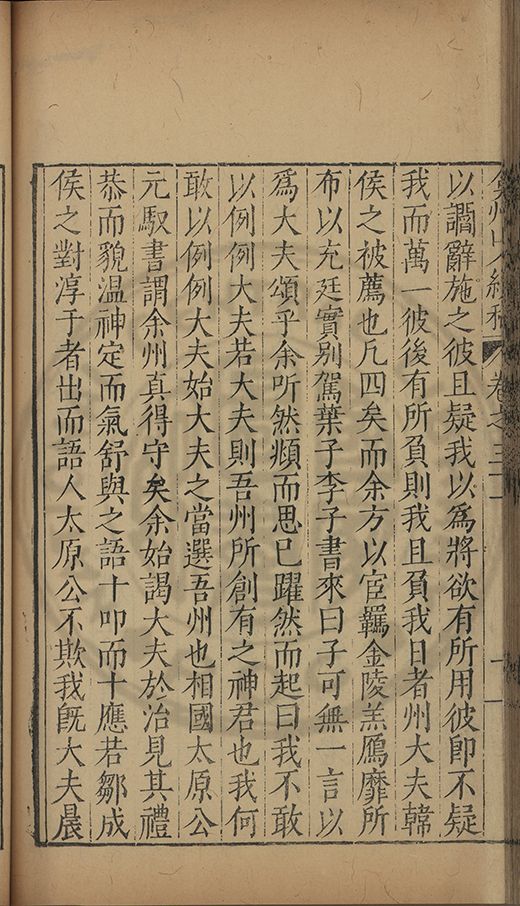 弇州山人續稿 卷之三
以譎辭施之彼且疑我以爲將欲有所用彼卽不疑
我而萬一彼後有所負則我且負我日者州大夫韓
侯之被薦也凡四矣而余方以宦羈金陵羔鴈靡所
布以充廷實别駕葉子李子書來曰子可無一言以
爲大夫頌乎余听然頫而思已躍然而起曰我不敢
以例例大夫若大夫則吾州所創有之神君也我何
敢以例例大夫始大夫之當選吾州也相國太原公
元馭書謂余州真得守矣余始謁大夫於治見其禮
恭而貌温神定而氣舒與之語十叩而十應若鄒成
侯之對淳于者出而語人太原公不欺我旣大夫晨